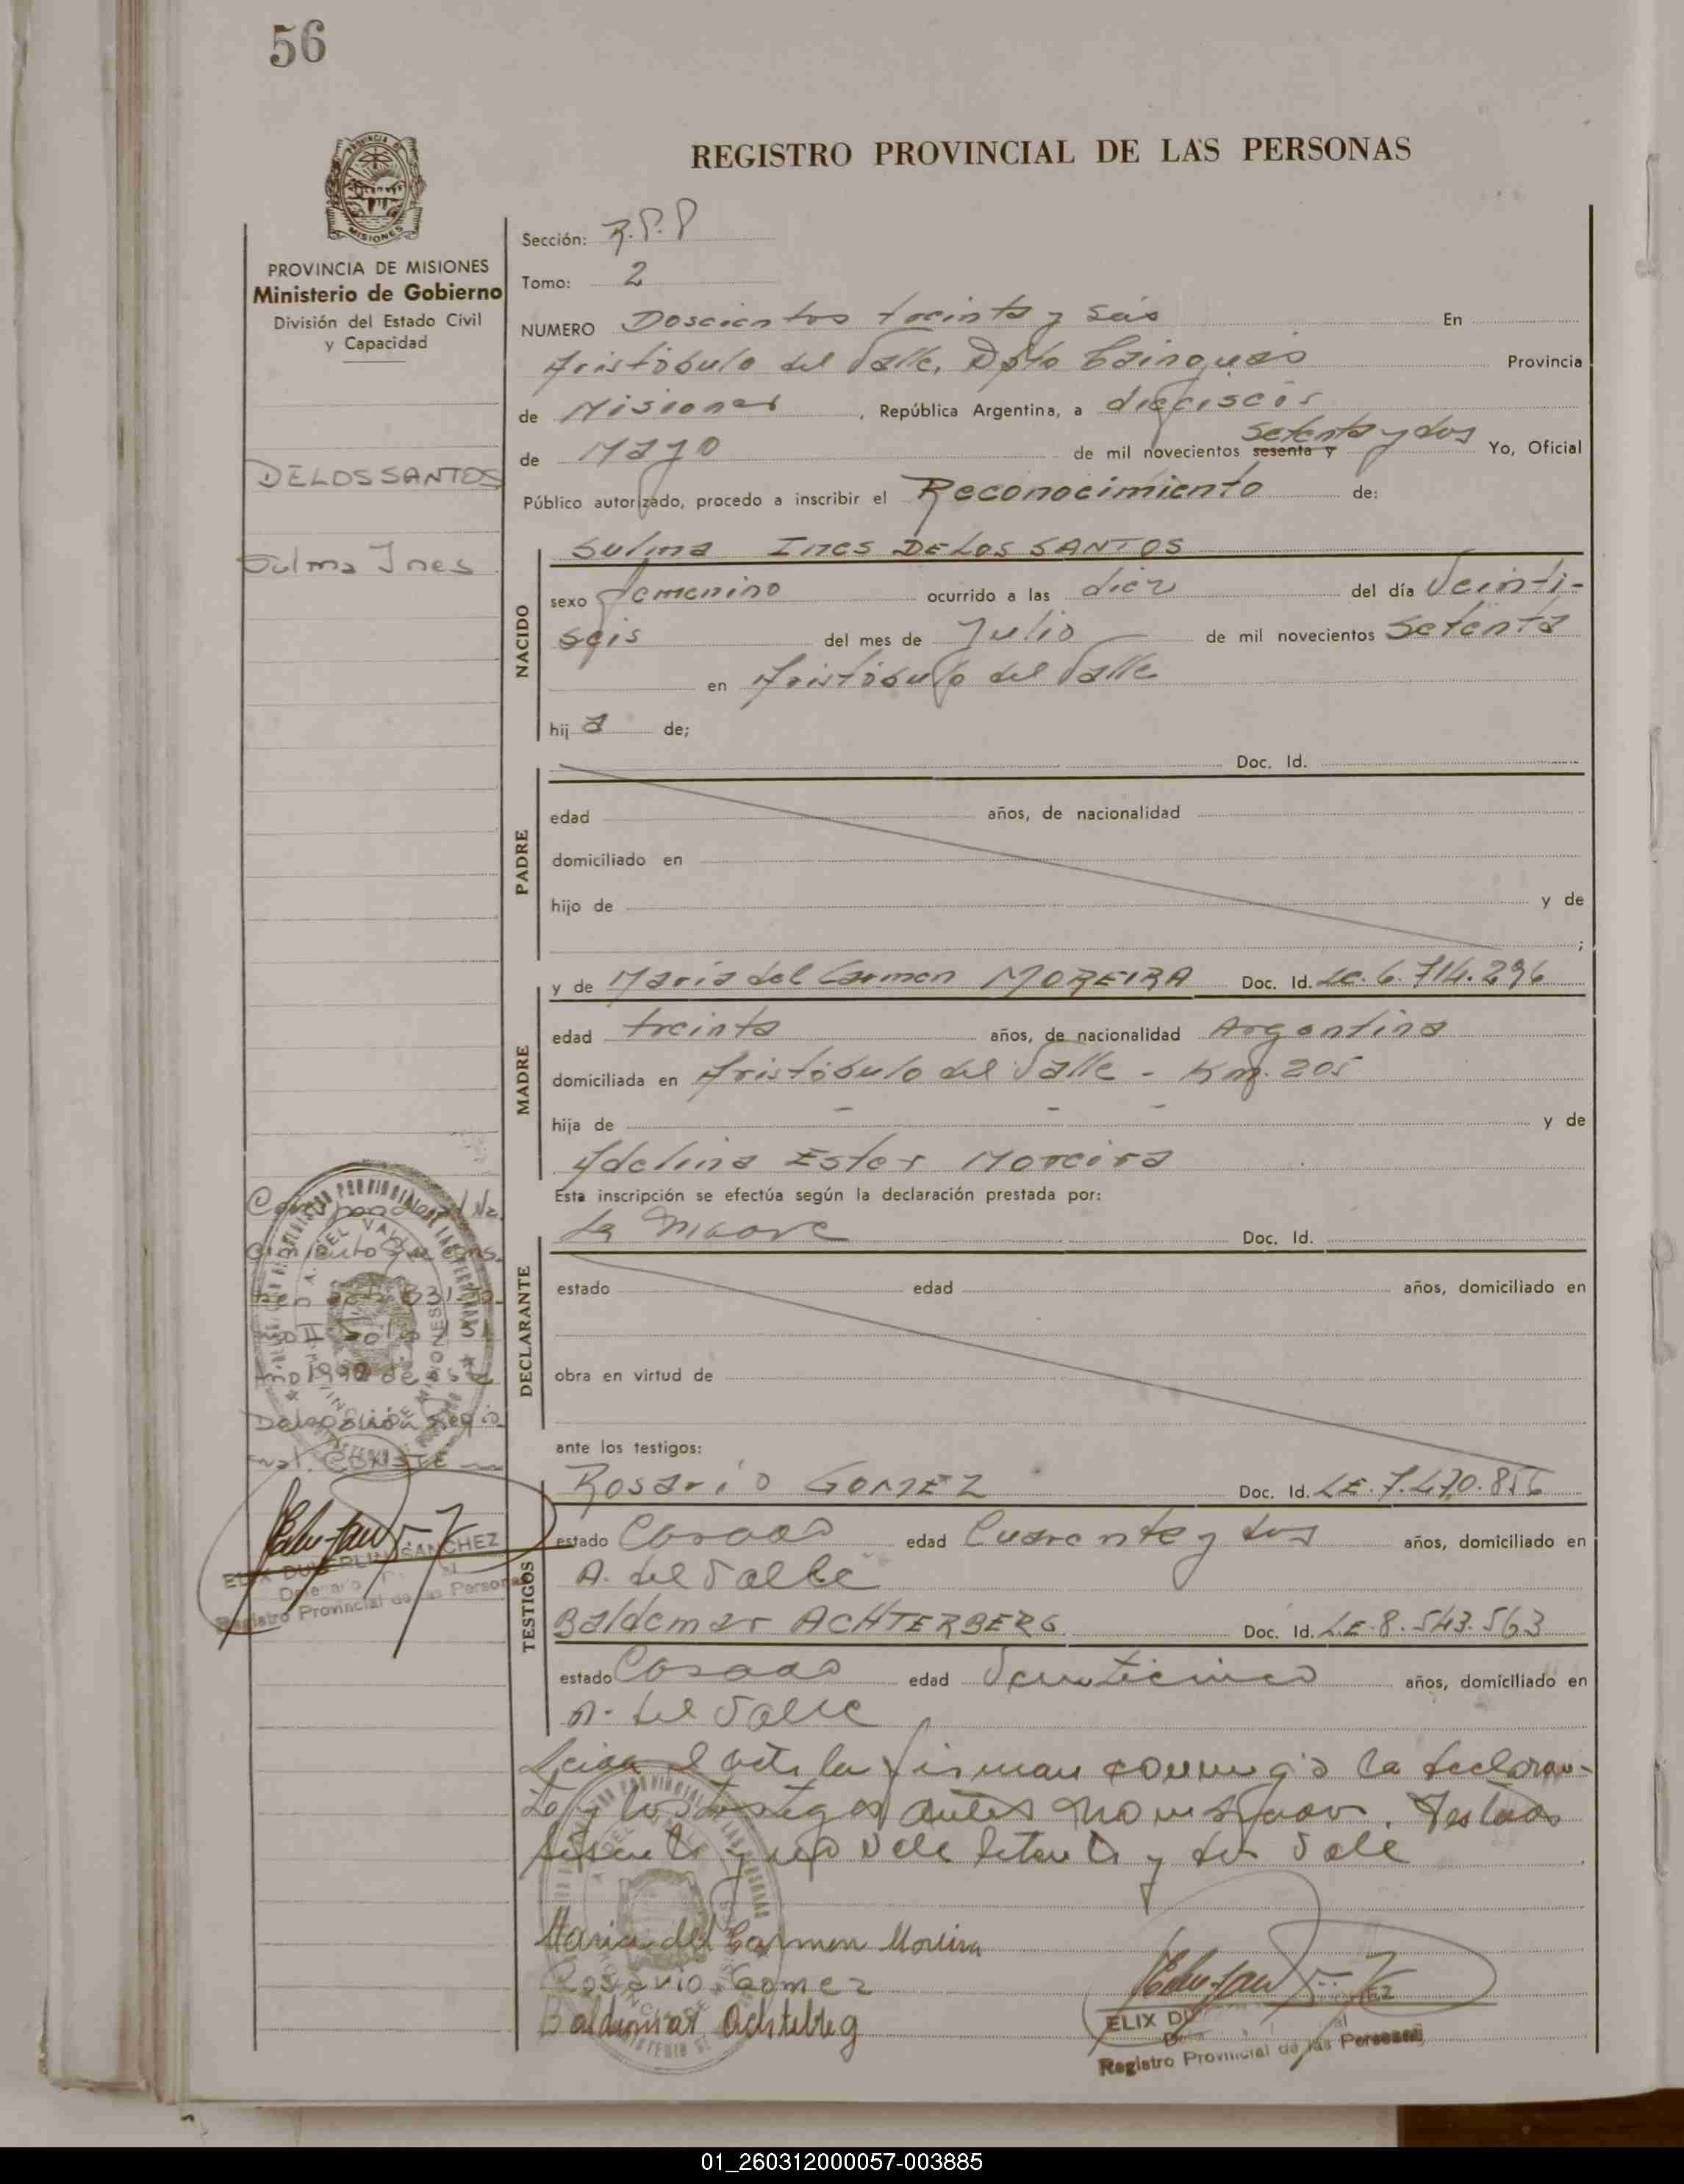 56
REGISTRO PROVINCIAL DE LAS PERSONAS
PROVINCIA DE MISIONES
Ministerio de Gobierno
División del Estado Civil
y Capacidad
DELOSSANTOS
Sulma Ines
Sección: R.P.P
Tomo: 2
NUMERO Doscientos treinta y seis En
Aristóbulo del Valle, Dpto Cainguas Provincia
de Misiones, República Argentina, a dieciseis
de Mayo de mil novecientos sesenta y setenta y dos Yo, Oficial
Público autorizado, procedo a inscribir el Reconocimiento de:
NACIDO
Sulma Ines DELOS SANTOS
sexo femenino ocurrido a las diez del día Veinti-
seis del mes de Julio de mil novecientos Setenta
en Aristóbulo del Valle
hij a de;
PADRE
Doc. Id.
edad años, de nacionalidad
domiciliado en
hijo de y de
;
MADRE
y de Maria del Carmen MOREIRA Doc. Id. LC. 6.714.296
edad treinta años, de nacionalidad Argentina
domiciliada en Aristóbulo del Valle - Km. 205
hija de - - - y de
Adelina Ester Moreira
Esta inscripción se efectúa según la declaración prestada por:
DECLARANTE
La Madre Doc. Id.
estado edad años, domiciliado en
obra en virtud de
ante los testigos:
TESTIGOS
Rosario GOMEZ Doc. Id. LE. 7.470.856
estado Casado edad Cuarenta y dos años, domiciliado en
A. del Valle
Baldemar ACHTERBERG Doc. Id. LE. 8.543.563
estado Casado edad Veinticinco años, domiciliado en
A. del Valle
Leída el acta la firman conmigo la declaran-
te y los testigos antes nombrados. Testado
sesenta y no vale setenta y dos Vale
Maria del Carmen Moreira
Rosario Gomez
Baldemar Achtelbeg
ELIX
Registro Provincial de las Personas
SANCHEZ
Registro Provincial de las Personas
01_260312000057-003885